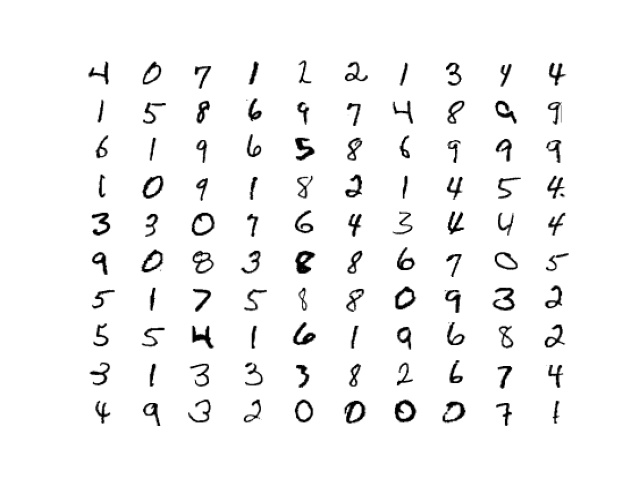 4 0 7 1 2 2 1 3 4 4
1 5 8 6 9 7 4 8 9 9
6 1 9 6 5 8 6 9 9 9
1 0 9 1 8 2 1 4 5 4
3 3 0 7 6 4 3 4 4 4
9 0 8 3 8 8 6 7 0 5
5 1 7 5 8 8 0 9 3 2
5 5 4 1 6 1 9 6 8 2
3 1 3 3 3 8 2 6 7 4
4 9 3 2 0 0 0 0 7 1